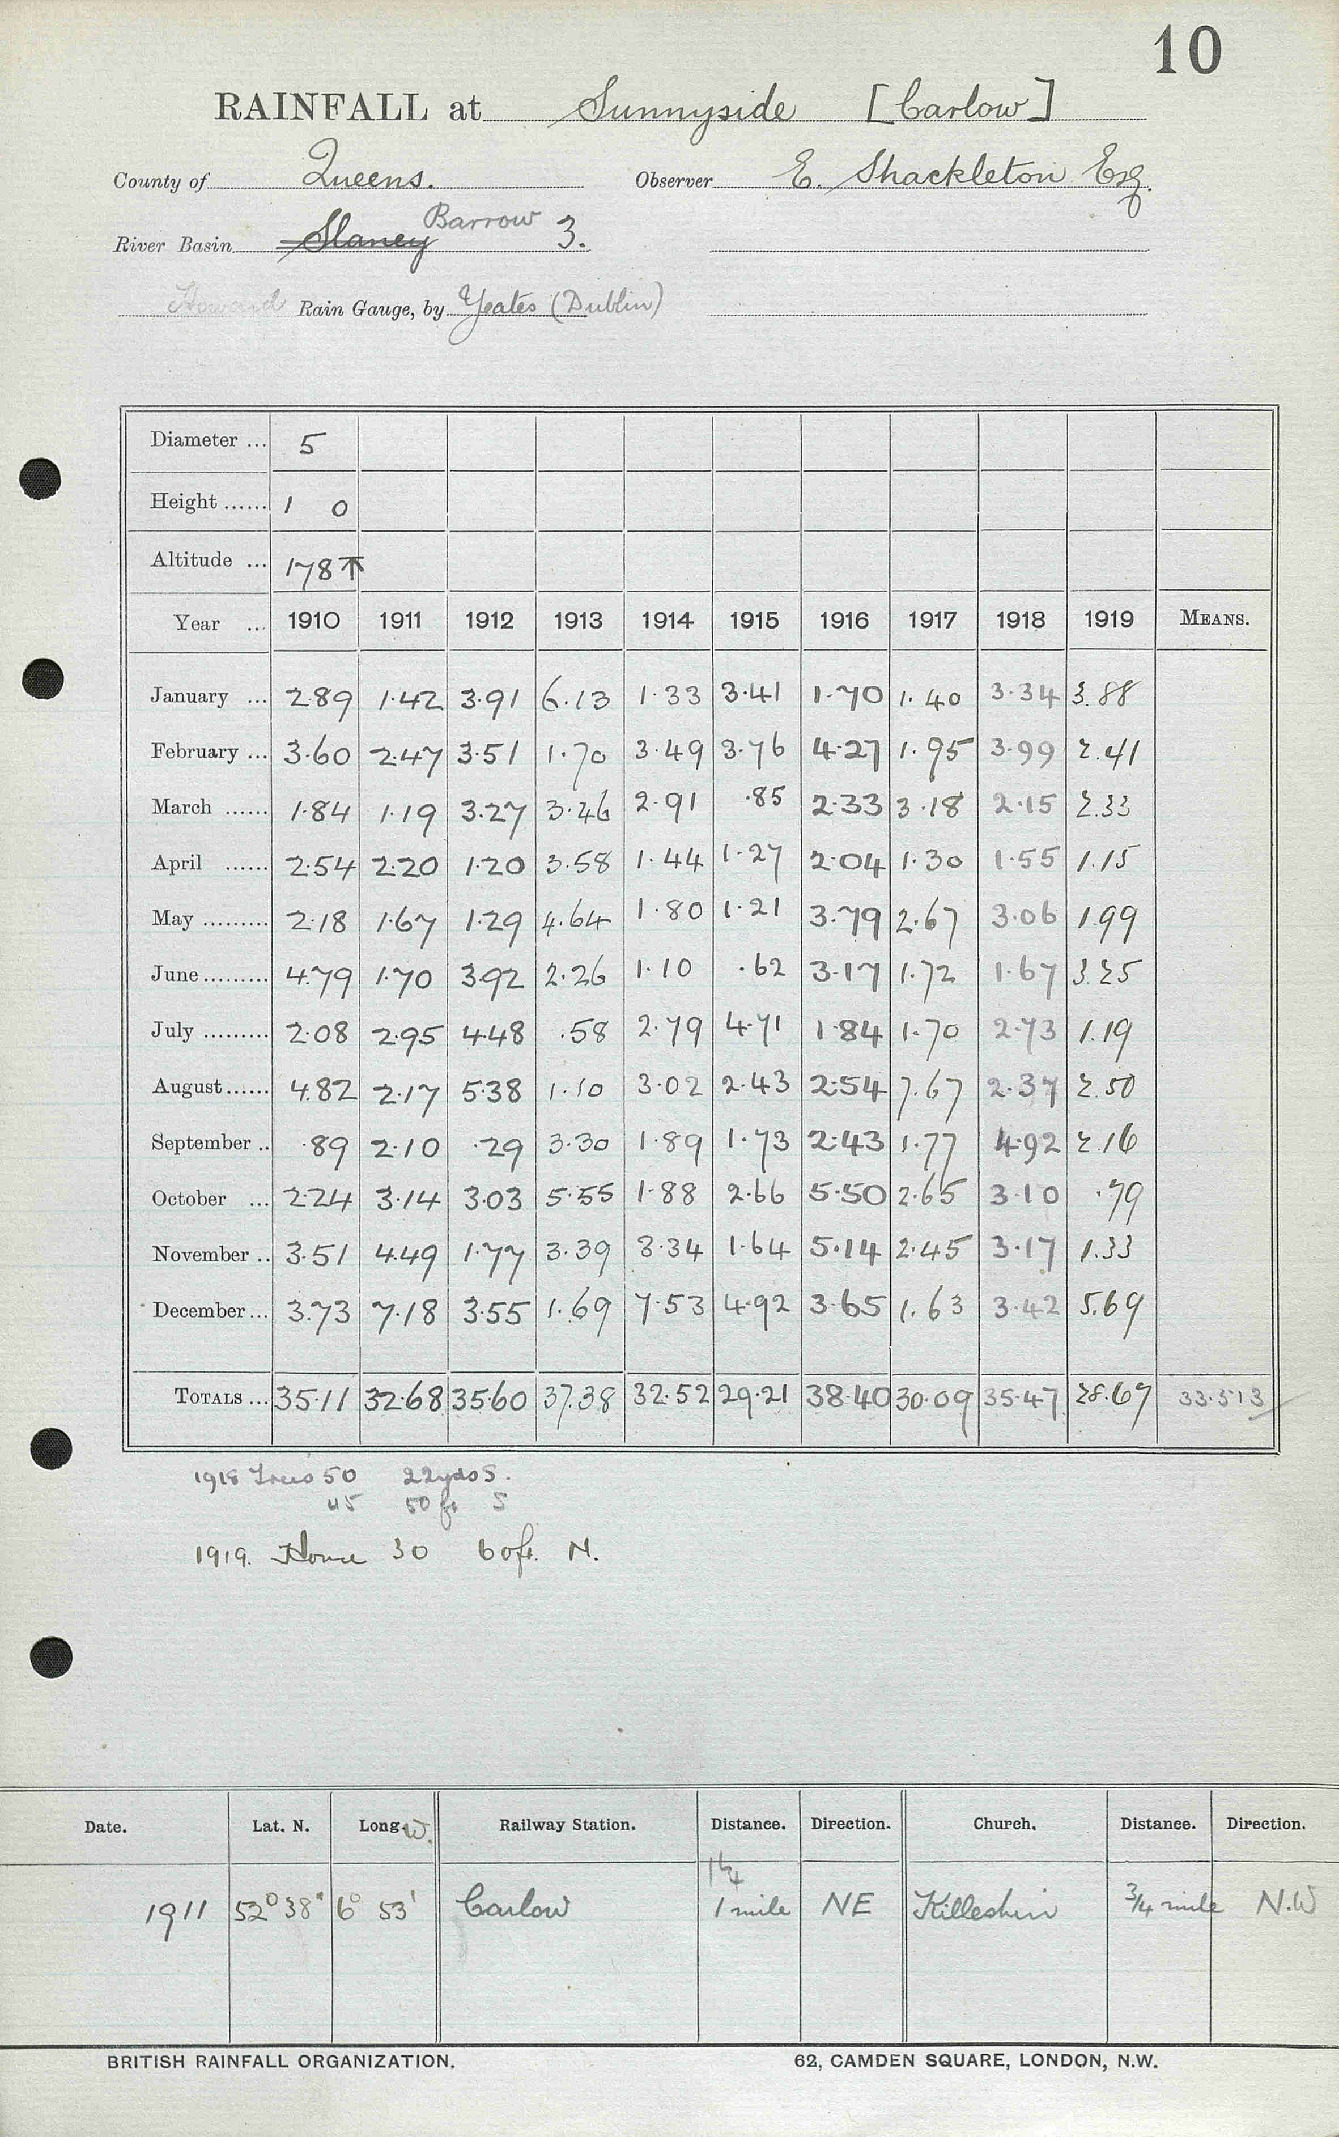 10
RAINFALL at Sunnyside [Carlow]
County of Queens. Observer E. Shackleton Esq.
River Basin Slaney Barrow 3.
Howard Rain Gauge, by Yeates (Dublin)
Diameter ... 5
Height ...... 1 0
Altitude ... 178 ↑
Year ... 1910 1911 1912 1913 1914 1915 1916 1917 1918 1919 MEANS.
January ... 2.89 1.42 3.91 6.13 1.33 3.41 1.70 1.40 3.34 3.88
February ... 3.60 2.47 3.51 1.70 3.49 3.76 4.27 1.95 3.99 2.41
March ...... 1.84 1.19 3.27 3.46 2.91 .85 2.33 3.18 2.15 2.33
April ...... 2.54 2.20 1.20 3.58 1.44 1.27 2.04 1.30 1.55 1.15
May ......... 2.18 1.67 1.29 4.64 1.80 1.21 3.79 2.67 3.06 1.99
June ......... 4.79 1.70 3.92 2.26 1.10 .62 3.17 1.72 1.67 3.25
July ......... 2.08 2.95 4.48 .58 2.79 4.71 1.84 1.70 2.73 1.19
August ...... 4.82 2.17 5.38 1.10 3.02 2.43 2.54 7.67 2.37 2.50
September .. .89 2.10 .29 3.30 1.89 1.73 2.43 1.77 4.92 2.16
October ... 2.24 3.14 3.03 5.55 1.88 2.66 5.50 2.65 3.10 .79
November .. 3.51 4.49 1.77 3.39 3.34 1.64 5.14 2.45 3.17 1.33
December ... 3.73 7.18 3.55 1.69 7.53 4.92 3.65 1.63 3.42 5.69
TOTALS ... 35.11 32.68 35.60 37.38 32.52 29.21 38.40 30.09 35.47 28.67 33.513
1918 Trees 50 22yds S.
45 50 ft S
1919. House 30 60ft. N.
Date. Lat. N. Long. W. Railway Station. Distance. Direction. Church. Distance. Direction.
1¼
1911 52° 38' 6° 53' Carlow 1 mile NE Killeshin ¾ mile N.W
BRITISH RAINFALL ORGANIZATION. 62, CAMDEN SQUARE, LONDON, N.W.